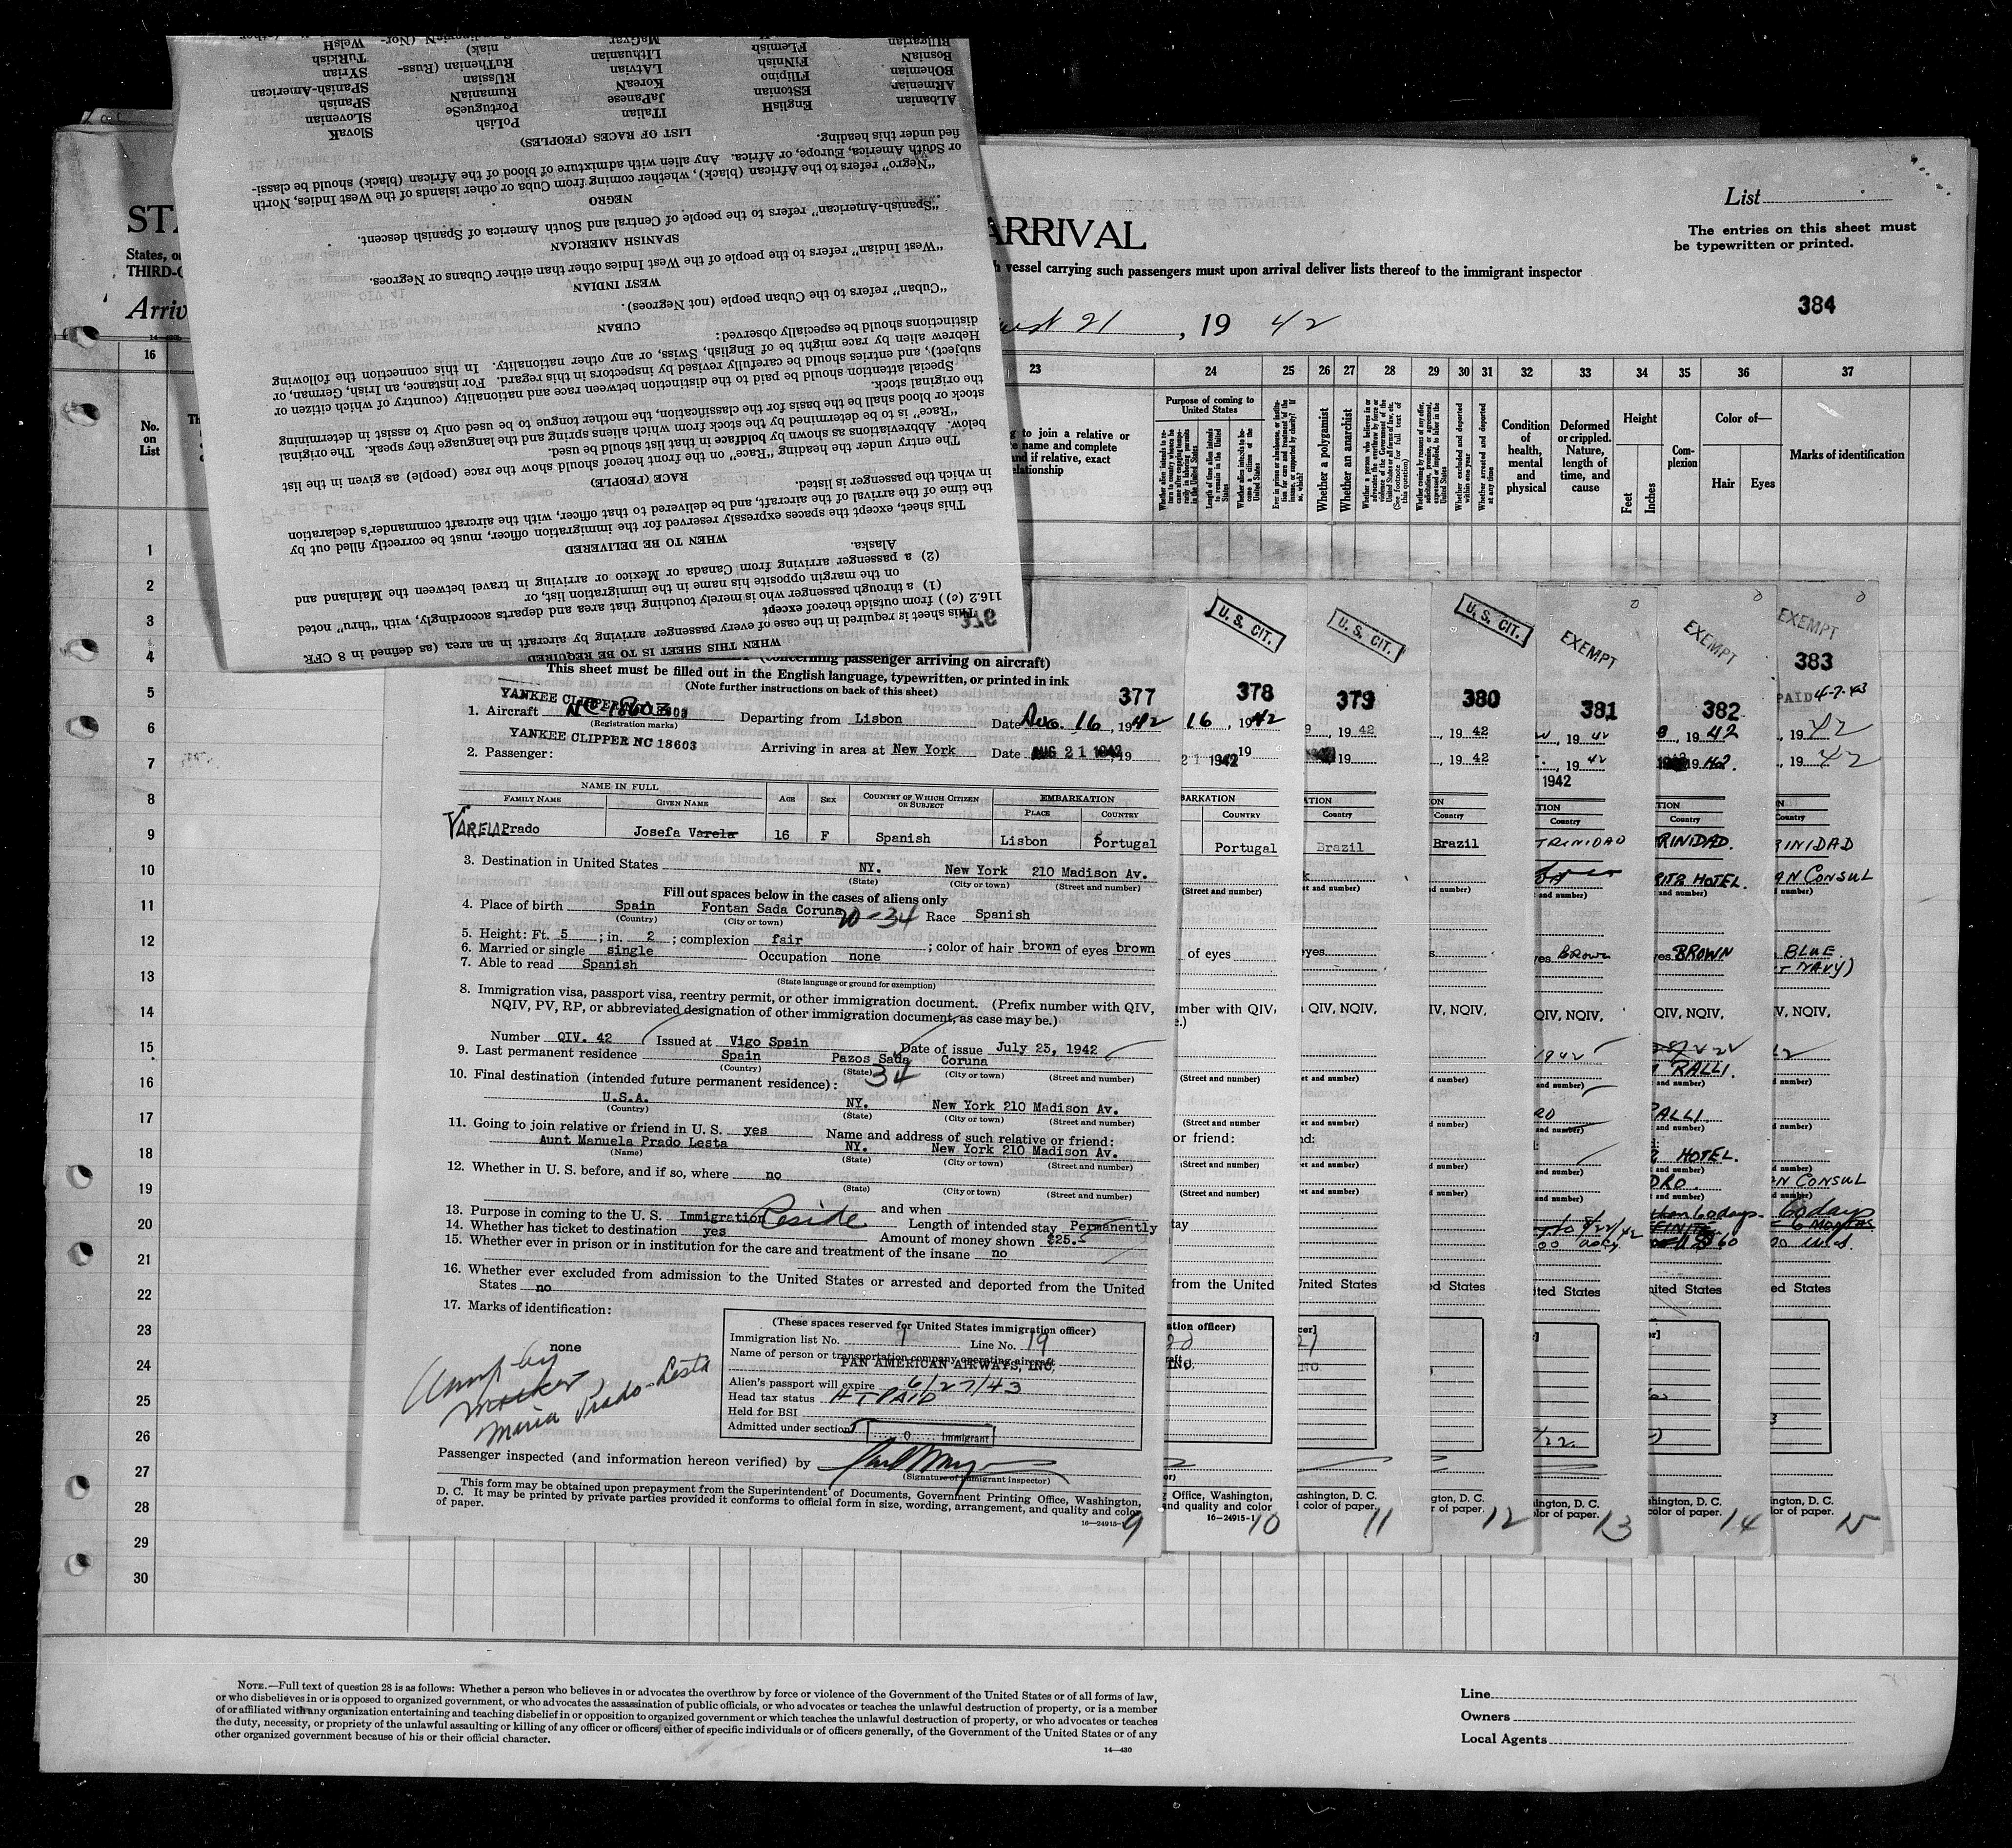 List
The entries on this sheet must
be typewritten or printed.
ARRIVAL
States, or
THIRD-C
vessel carrying such passengers must upon arrival deliver lists thereof to the immigrant inspector
384
Arriv
21, 19 42
16 23 24 25 26 27 28 29 30 31 32 33 34 35 36 37
No. on List
to join a relative or
name and complete
and if relative, exact
relationship
Purpose of coming to United States
Whether a polygamist
Whether an anarchist
Condition of health, mental and physical
Deformed or crippled. Nature, length of time, and cause
Height
Feet
Inches
Complexion
Color of—
Hair
Eyes
Marks of identification
1
2
3
4
5
6
7
8
9
10
11
12
13
14
15
16
17
18
19
20
21
22
23
24
25
26
27
28
29
30
376
WHEN THIS SHEET IS TO BE REQUIRED
This sheet is required in the case of every passenger arriving by aircraft in an area (as defined in 8 CFR
116.2 (c)) from outside thereof except
(1) a through passenger who is merely touching that area and departs accordingly, with "thru" noted
on the margin opposite his name in the immigration list, or
(2) a passenger arriving from Canada or Mexico or arriving in travel between the Mainland and
Alaska.
WHEN TO BE DELIVERED
This sheet, except the spaces expressly reserved for the immigration officer, must be correctly filled out by
the time of the arrival of the aircraft, and be delivered to that officer, with the aircraft commander's declaration
in which the passenger is listed.
RACE (PEOPLE)
The entry under the heading "Race" on the front hereof should show the race (people) as given in the list
below. Abbreviations as shown by boldface in that list should be used.
"Race" is to be determined by the stock from which aliens spring and the language they speak. The original
stock or blood shall be the basis for the classification, the mother tongue to be used only to assist in determining
the original stock.
Special attention should be paid to the distinction between race and nationality (country of which citizen or
subject), and entries should be carefully revised by inspectors in this regard. For instance, an Irish, German, or
Hebrew alien by race might be of English, Swiss, or any other nationality. In this connection the following
distinctions should be especially observed:
CUBAN
"Cuban" refers to the Cuban people (not Negroes).
WEST INDIAN
"West Indian" refers to the people of the West Indies other than either Cubans or Negroes.
SPANISH AMERICAN
"Spanish-American" refers to the people of Central and South America of Spanish descent.
NEGRO
"Negro" refers to the African (black), whether coming from Cuba or other islands of the West Indies, North
or South America, Europe, or Africa. Any alien with admixture of blood of the African (black) should be classi-
fied under this heading.
LIST OF RACES (PEOPLES)
ALbanian EnglisH ITalian PoLish SlovaK
ARmenian EStonian JaPanese PortugueSe SLOvenian
BOhemian FIlipino KoreaN RumaniaN SPanish
BosniaN FiNnish LAtvian RUssian SPanish-American
BUlgarian FLemish LIthuanian RuThenian (Russ- SYrian
MaGyar niak) TuRkish
WelsH
(Concerning passenger arriving on aircraft)
This sheet must be filled out in the English language, typewritten, or printed in ink
(Note further instructions on back of this sheet)
377
YANKEE CLIPPER NC 18603
1. Aircraft NC 18603 Departing from Lisbon Date Aug. 16, 1942
(Registration marks)
YANKEE CLIPPER NC 18603
Arriving in area at New York Date AUG 21 1942, 19
2. Passenger:
NAME IN FULL
FAMILY NAME GIVEN NAME AGE SEX COUNTRY OF WHICH CITIZEN OR SUBJECT EMBARKATION
PLACE COUNTRY
VARELA Prado Josefa Varela 16 F Spanish Lisbon Portugal
3. Destination in United States NY. New York 210 Madison Av.
(State) (City or town) (Street and number)
Fill out spaces below in the cases of aliens only
4. Place of birth Spain Fontan Sada Coruna Race Spanish
(Country) (City or town)
5. Height: Ft. 5; in. 2; complexion fair; color of hair brown of eyes brown
6. Married or single single Occupation none
7. Able to read Spanish
(State language or ground for exemption)
8. Immigration visa, passport visa, reentry permit, or other immigration document. (Prefix number with QIV,
NQIV, PV, RP, or abbreviated designation of other immigration document, as case may be.)
Number QIV. 42 Issued at Vigo Spain Date of issue July 23, 1942
9. Last permanent residence Spain Pazos Sada Coruna
(Country) (State) 34 (City or town) (Street and number)
10. Final destination (intended future permanent residence):
U.S.A. NY. New York 210 Madison Av.
(Country) (State) (City or town) (Street and number)
11. Going to join relative or friend in U. S. yes Name and address of such relative or friend:
Aunt Manuela Prado Lesta NY. New York 210 Madison Av.
(Name) (State) (City or town) (Street and number)
12. Whether in U. S. before, and if so, where no
(State) (City or town) (Street and number)
and when
13. Purpose in coming to the U. S. Immigration Reside Length of intended stay Permanently
14. Whether has ticket to destination yes Amount of money shown $25.-
15. Whether ever in prison or in institution for the care and treatment of the insane no
16. Whether ever excluded from admission to the United States or arrested and deported from the United
States no
17. Marks of identification:
none
mother
Maria Prado-Lesta
(These spaces reserved for United States immigration officer)
Immigration list No. 1 Line No. 19
Name of person or transportation company operating aircraft
PAN AMERICAN AIRWAYS, INC.
Alien's passport will expire 6/27/43
Head tax status HT PAID
Held for BSI
Admitted under section 5 0 Immigrant
Passenger inspected (and information hereon verified) by
(Signature of immigrant inspector)
This form may be obtained upon prepayment from the Superintendent of Documents, Government Printing Office, Washington,
D. C. It may be printed by private parties provided it conforms to official form in size, wording, arrangement, and quality and color
of paper.
16—24915-1
9
U. S. CIT.
378
16, 1942
21 1942 19
BARKATION
COUNTRY
Portugal
(Street and number)
of eyes
number with QIV,
or friend:
from the United
Office, Washington,
and quality and color
16—24915-1
10
U. S. CIT.
379
, 19 42
Country
Brazil
QIV, NQIV,
United States
ashington, D. C.
color of paper.
11
U. S. CIT.
380
, 19 42
, 19 42
Country
Brazil
IV, NQIV,
ed States
gton, D. C.
r of paper.
12
EXEMPT
381
, 19 42
, 19 42
1942
Country
TRINIDAD
Brown
QIV, NQIV,
1942
ited States
ington, D. C.
olor of paper.
13
EXEMPT
382
, 19 42
Country
RINIDAD.
RITZ HOTEL.
BROWN
QIV, NQIV,
RALLI.
RALLI
HOTEL.
nited States
shington, D. C.
color of paper.
14
EXEMPT
383
PAID 4-7-43
, 19 42
, 19 42
Country
RINIDAD
AN CONSUL
BLUE.
NAVY)
QIV, NQIV,
N CONSUL
60 days
6 MONTHS
ed States
ington, D. C.
lor of paper.
15
NOTE.—Full text of question 28 is as follows: Whether a person who believes in or advocates the overthrow by force or violence of the Government of the United States or of all forms of law,
or who disbelieves in or is opposed to organized government, or who advocates the assassination of public officials, or who advocates or teaches the unlawful destruction of property, or is a member
of or affiliated with any organization entertaining and teaching disbelief in or opposition to organized government or which teaches the unlawful destruction of property, or who advocates or teaches
the duty, necessity, or propriety of the unlawful assaulting or killing of any officer or officers, either of specific individuals or of officers generally, of the Government of the United States or of any
other organized government because of his or their official character.
14—430
Line
Owners
Local Agents